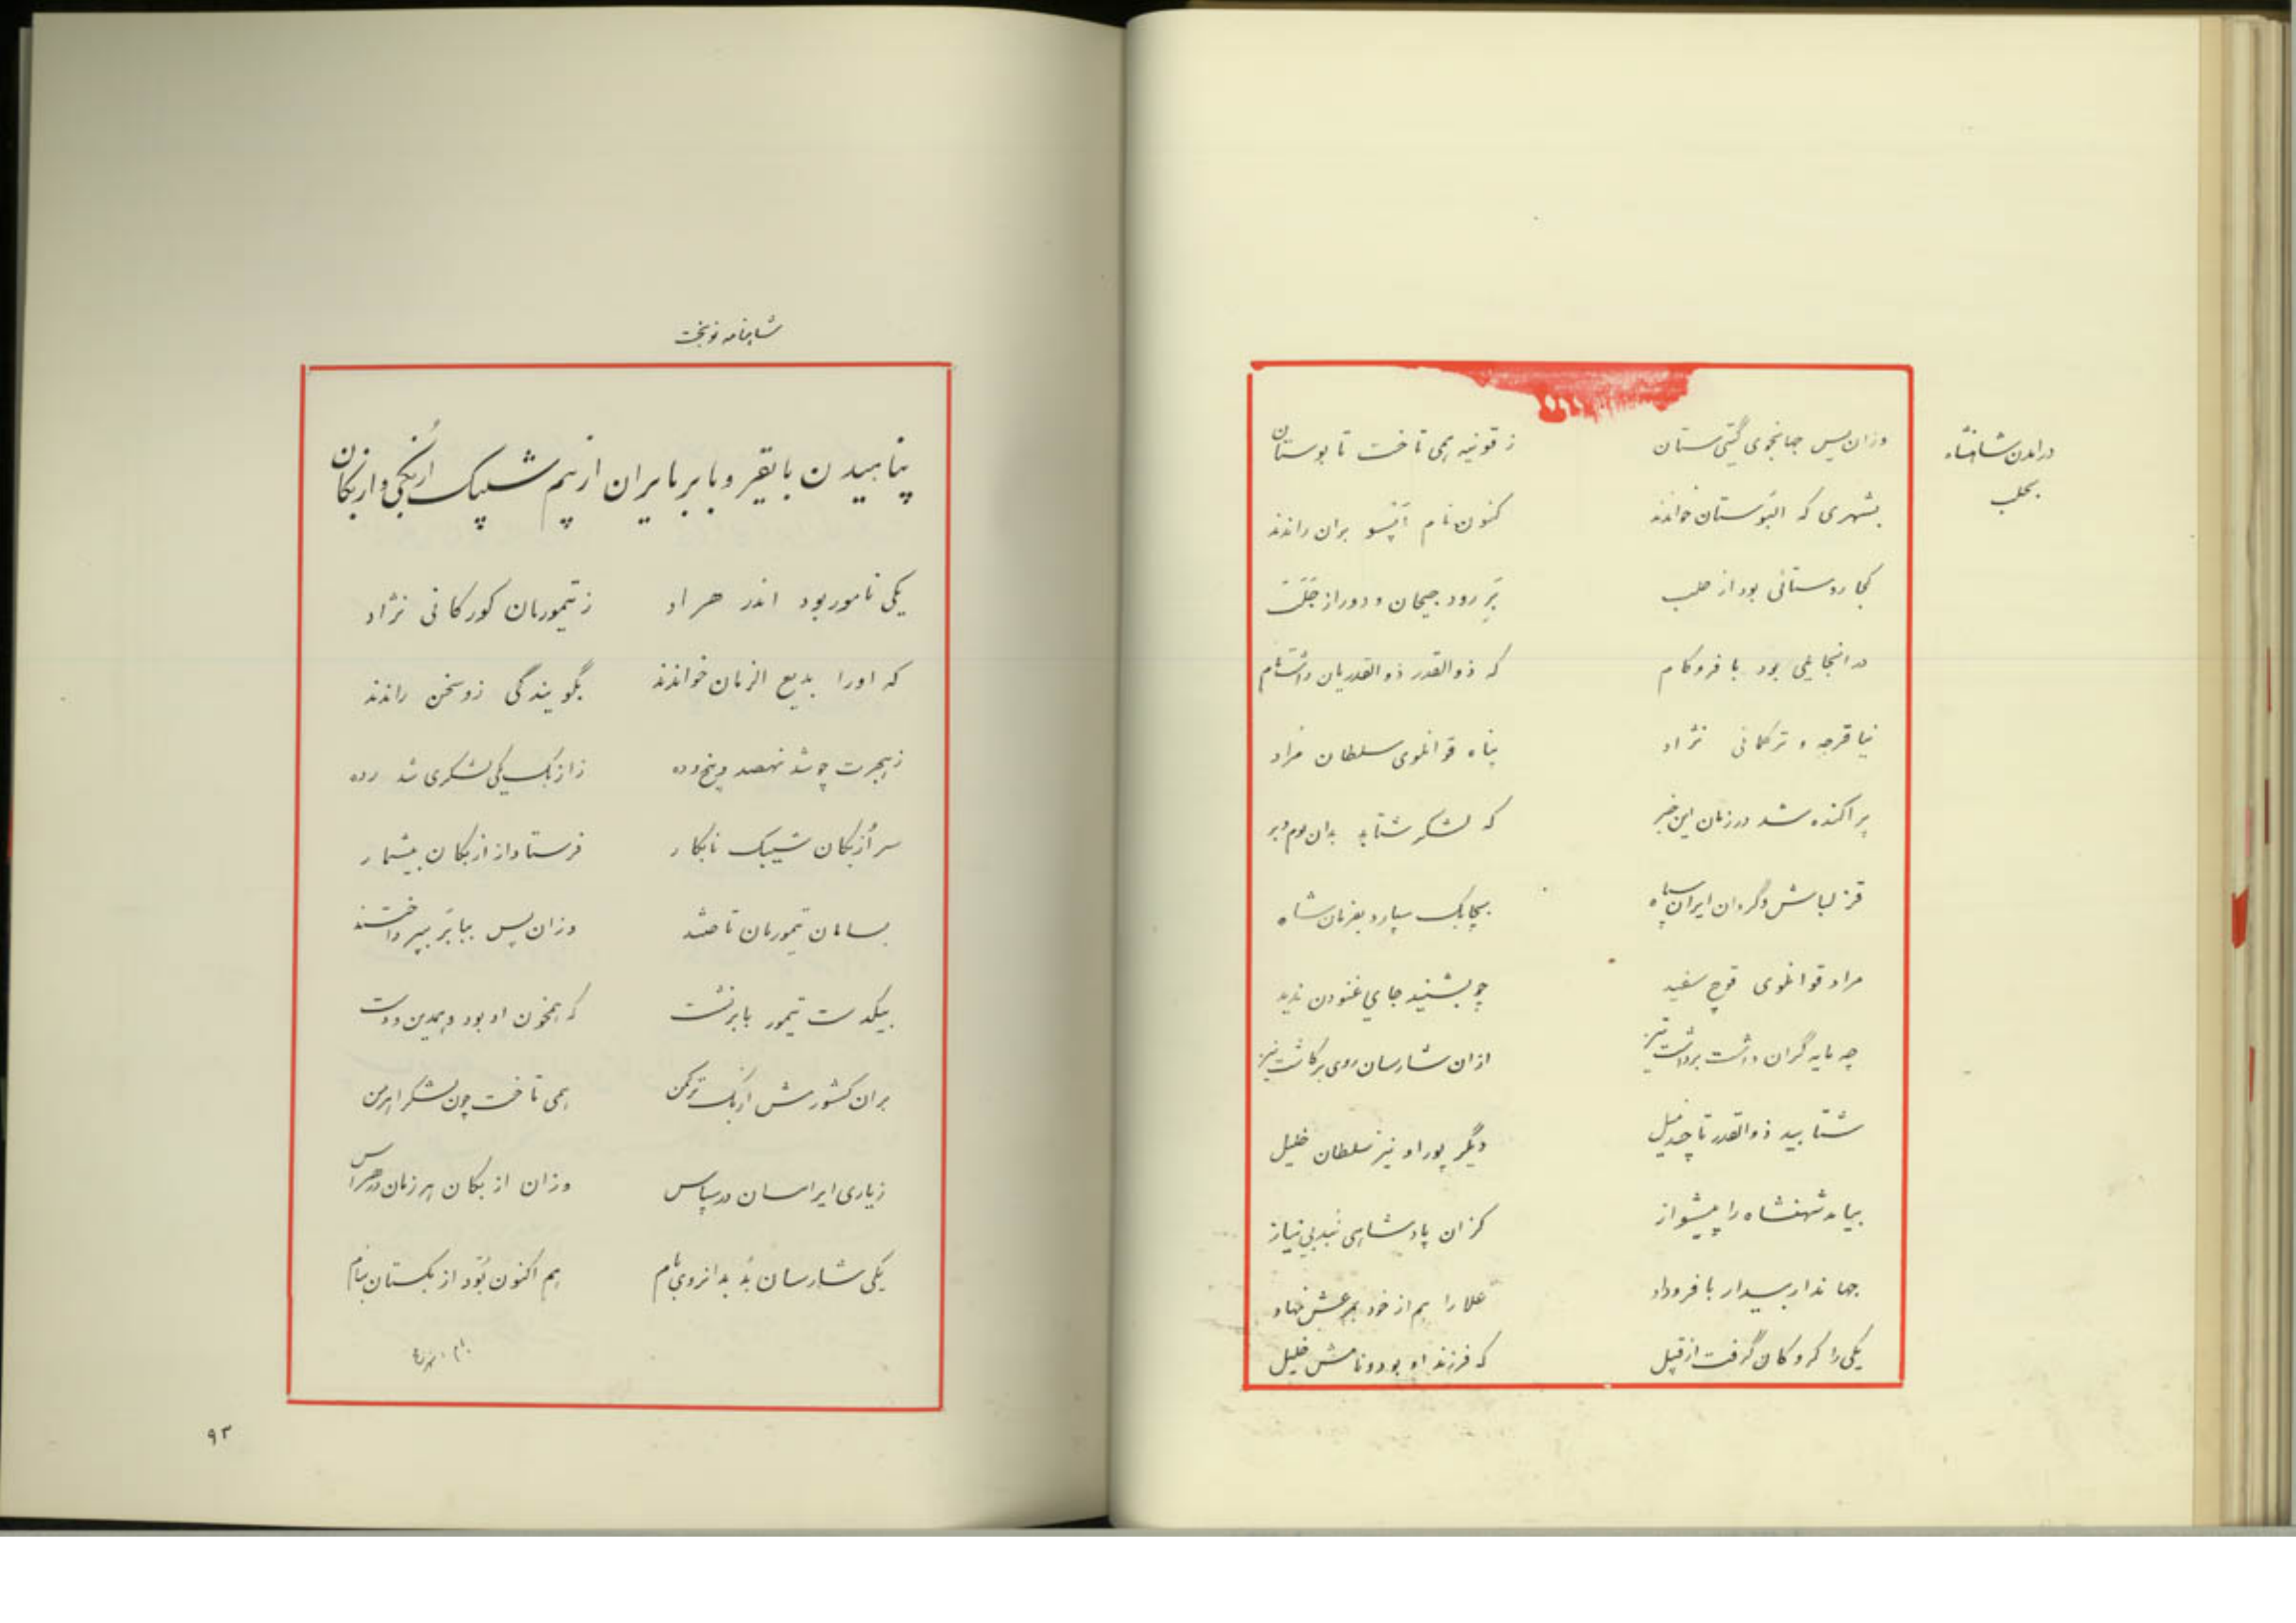 درامدن شاهنشاه
بحلب
وزان پس جهانجوی گیتی ستان
ز قونیه همی تاخت تا بوستان
بشهری که البوستان خواندند
کنون نام آپسو بران راندند
کجا روستائی بود از حلب
بر رود جیحان و دور از جلب
در انجا یلی بود با فر و کام
که ذوالقدر ذوالقدریان داشت نام
نیا قرجه و ترکمانی نژاد
پناه قوانلوی سلطان مراد
پراکنده شد در زمان این خبر
که لشکر شتابد بدان بوم و بر
قزلباش و گردان ایران سپاه
بچابک سپارد بفرمان شاه
مراد قوانلوی قوچ سفید
چو بشنید جای غنودن ندید
چه مایه گران داشت برداشت تیز
ازان شارسان روی برگاشت نیز
شتابید ذوالقدر تا چند میل
دیگر پور او نیز سلطان خلیل
بیامد شهنشاه را پیشواز
کزان پادشاهی نبد بی نیاز
جهاندار بیدار با فر و داد
علا را هم از خود بمرعش نهاد
یکی را گروگان گرفت از قبیل
که فرزند او بود و نامش خلیل
شاهنامه نوبخت
پناهیدن بایقر و بابر بایران از بیم شیبک ازبکی و ازبکان
یکی نامور بود اندر هراد
ز تیموریان کورکانی نژاد
که اورا بدیع الزمان خواندند
بگویندگی زو سخن راندند
ز هجرت چو شد نهصد و پنج و ده
ز ازبک یکی لشکری شد رده
سر اُزبکان شیبک نابکار
فرستاد از ازبکان بیشمار
بسامان تیموریان تاختند
وزان پس ببابر بپرداختند
بیکدست تیمور بابر نشست
که همخون او بود و همدین و دوست
بران کشورش ازبک ترکمن
همی تاخت چون لشکر اهرمن
ز یاری ایراسان در سپاس
وزان ازبکان هر زمان در هراس
یکی شارسان بُد بدانروی بام
هم اکنون بُوَد ازبکستان بنام
۹۳